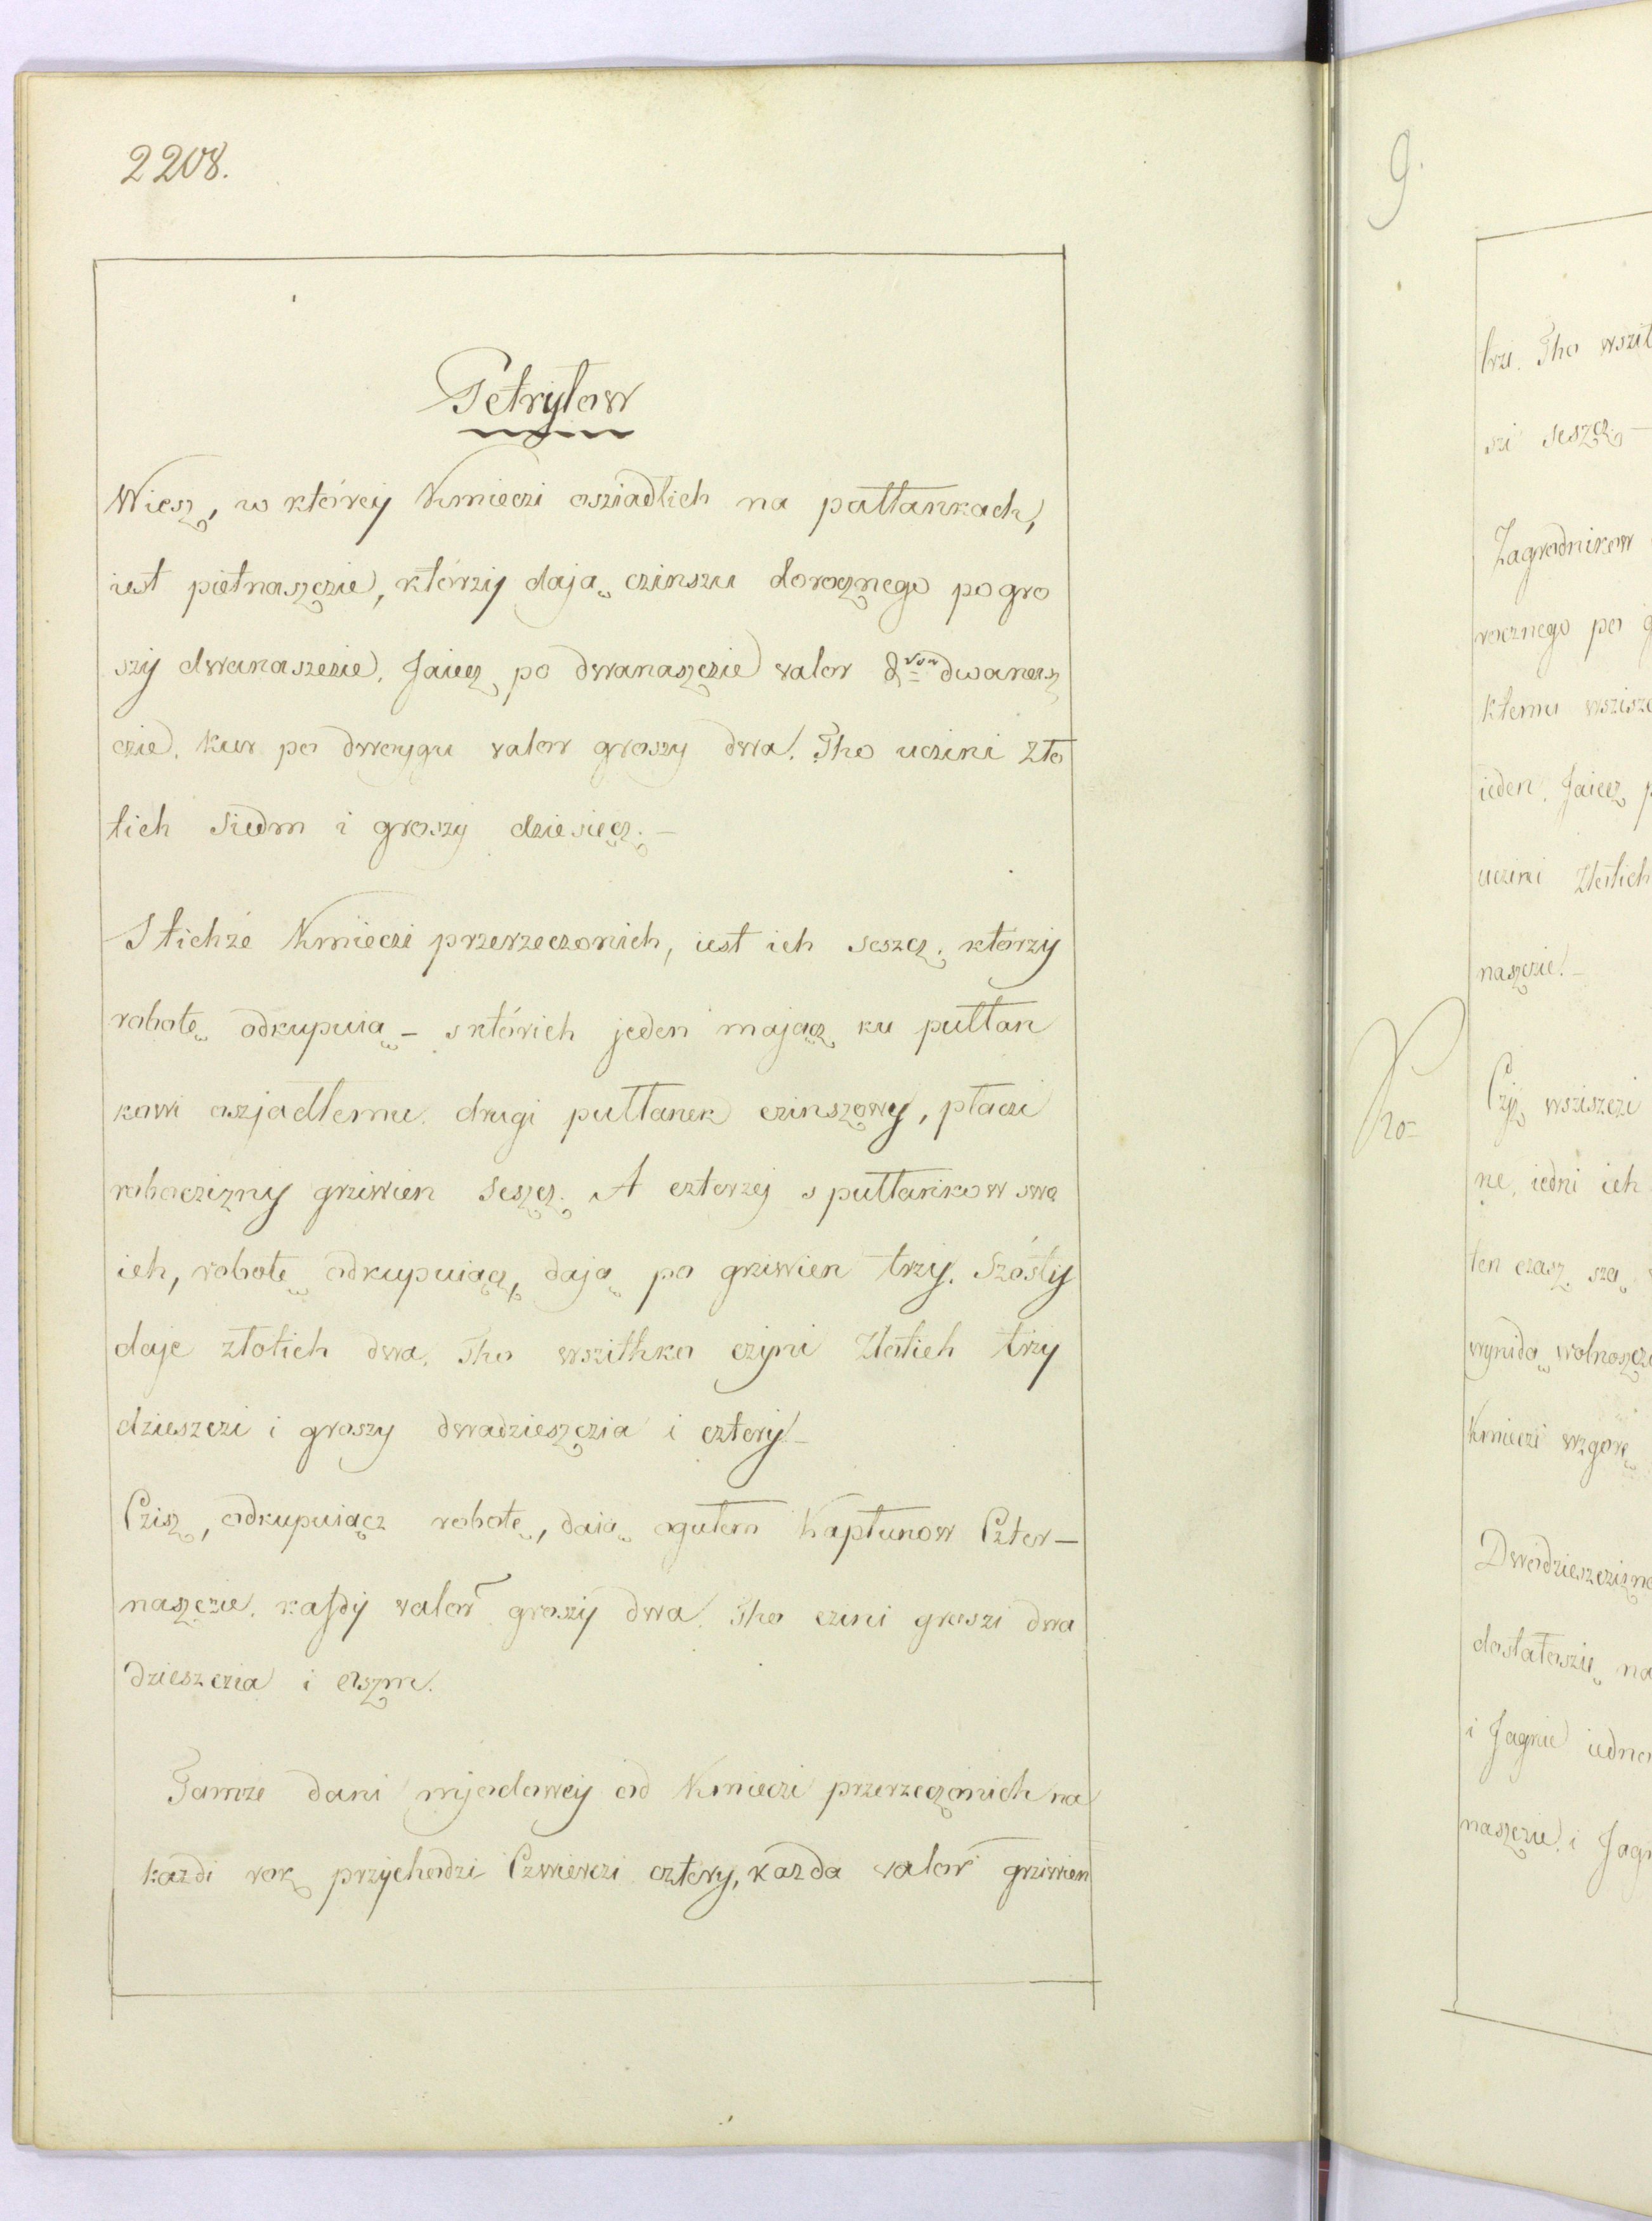 2208.
Petryłow
Wiesz, w którey Kmieczi osziadlich na pałłankach,
iest piętnaszczie, którzij dają czinszu dorocznego po gro
szij dwanaszczie. Jaiecz po dwanaszczie valor d dwanasz
czie. kur po dwoygu valor groszy dwa. Tho uczini Zło
tich siedm i groszy dziesięcz.–
S tichże Kmieczi przerzeczonich, iest ich sescz. którzij
robotę odkupuią – s którich jeden mającz ku pułłan
kowi oszjadłemu drugi pułłanek czinszowy, płaczi
roboczizny griwien sescz. A czterzej s pułłankow swo
ich, robotę odkupuiącz, dają po griwien trzy. Szósty
daje złotich dwa. Tho wszithko czyni Złotich trzy
dzieszczi i groszy dwadzieszczia i cztery –
Czisz, odkupuiącz robotę, daią ogułem Kapłunow Czter–
naszczie. każdy valor groszy dwa. Tho czini groszi dwa
dzieszczia i oszm.
Tamże dani mjodowej od Kmieczi przerzeczonich na
każdi rok przychodzi Czwierczi cztery, każda valor griwien
9.
trzi. Tho wszit
szi sescz –
Zagrodnikow
rocznego po g
ktemu wszisz
ieden. Jaiecz p
uczini Złotich
naszczie. –
Czy wsziszczi
ne, iedni ich
ten czasz szą
wynidą wolnoszcz
Kmieczi wzgorę
Dwadzieszczizne
dostatoszię na
i Jagnie iedno
naszczie. i Jagn